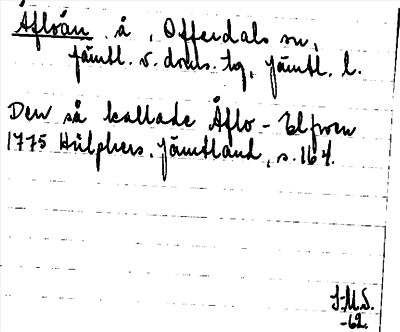 Åfloån å, Offerdals sn,
Jämtl. v. doms. tg, Jämtl. l.
Den så kallade Åflo-Elfwen
1775 Hülphers, Jämtland, s. 164.
S.M.S.
-62.